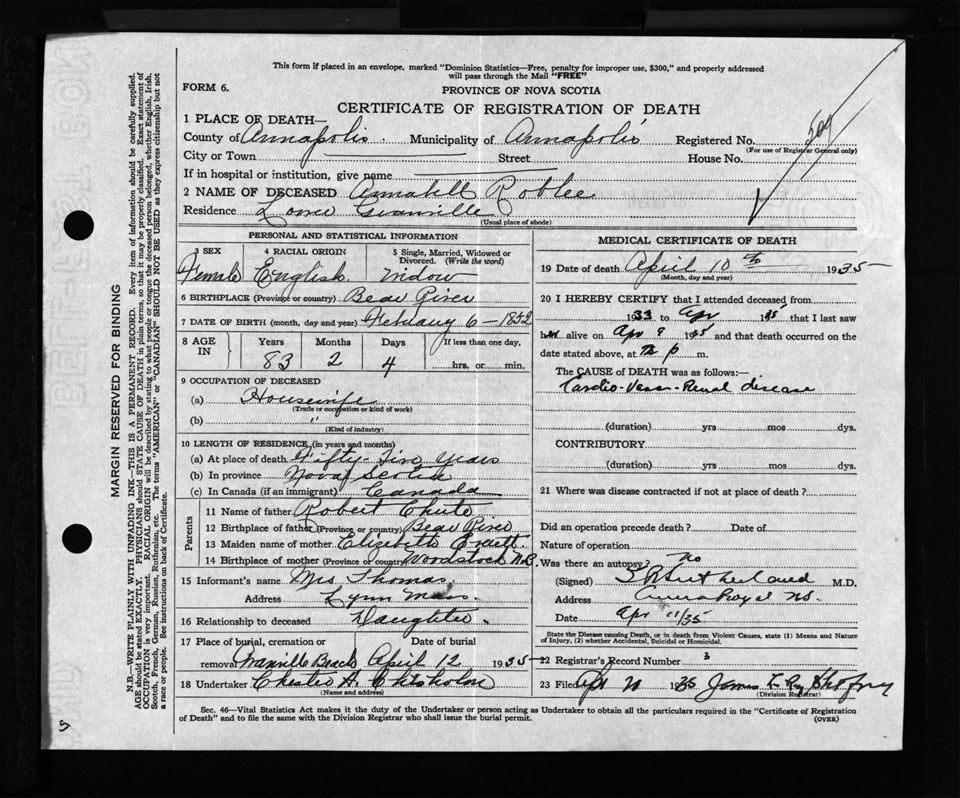 This form if placed in an envelope, marked "Dominion Statistics—Free, penalty for improper use, $300," and properly addressed
will pass through the Mail "FREE"
FORM 6.
PROVINCE OF NOVA SCOTIA
CERTIFICATE OF REGISTRATION OF DEATH
1 PLACE OF DEATH—
County of Annapolis. Municipality of Annapolis Registered No.
(For use of Registrar General only)
City or Town Street House No.
If in hospital or institution, give name
2 NAME OF DECEASED Annabell Roblee
Residence Lower Granville
(Usual place of abode)
PERSONAL AND STATISTICAL INFORMATION
3 SEX 4 RACIAL ORIGIN 5 Single, Married, Widowed or
Divorced. (Write the word)
Female English. Widow
6 BIRTHPLACE (Province or country) Bear River
7 DATE OF BIRTH (month, day and year) February 6 - 1852
8 AGE IN Years Months Days If less than one day,
83 2 4 hrs. or min.
9 OCCUPATION OF DECEASED
(a) Housewife
(Trade or occupation or kind of work)
(b) "
(Kind of industry)
10 LENGTH OF RESIDENCE (in years and months)
(a) At place of death Fifty-Five years
(b) In province Nova Scotia
(c) In Canada (if an immigrant) Canada
Parents
11 Name of father Robert Chute
12 Birthplace of father (Province or country) Bear River
13 Maiden name of mother Elizabeth
14 Birthplace of mother (Province or country) Woodstock N.B.
15 Informant's name Mrs Thomas.
Address Lynn Mass.
16 Relationship to deceased Daughter
17 Place of burial, cremation or Date of burial
removal Granville Beach April 12 1935
18 Undertaker Chester A. Chisholm
(Name and address)
MEDICAL CERTIFICATE OF DEATH
19 Date of death April 10 th 1935
(Month, day and year)
20 I HEREBY CERTIFY that I attended deceased from
1933 to Apr 1935 that I last saw
her alive on Apr 9 1935 and that death occurred on the
date stated above, at p m.
The CAUSE of DEATH was as follows:—
Cardio-Vasc-Renal disease
(duration) yrs mos dys.
CONTRIBUTORY
(duration) yrs mos dys.
21 Where was disease contracted if not at place of death?
Did an operation precede death? Date of
Nature of operation
Was there an autopsy? No
(Signed) Sutherland M.D.
Address Anna Royal NS.
Date Apr 11/35
State the Disease causing Death, or in death from Violent Causes, state (1) Means and Nature
of Injury, (2) whether Accidental, Suicidal or Homicidal.
22 Registrar's Record Number 3
23 Filed 1935 James
(Division Registrar)
Sec. 46—Vital Statistics Act makes it the duty of the Undertaker or person acting as Undertaker to obtain all the particulars required in the "Certificate of Registration
of Death" and to file the same with the Division Registrar who shall issue the burial permit.
(OVER)
MARGIN RESERVED FOR BINDING
N.B.—WRITE PLAINLY WITH UNFADING INK—THIS IS A PERMANENT RECORD. Every item of information should be carefully supplied.
AGE should be stated EXACTLY. PHYSICIANS should STATE CAUSE OF DEATH in plain terms, so that it may be properly classified. Exact statement of
OCCUPATION is very important. RACIAL ORIGIN will be described by stating to what people or tongue the deceased person belonged, whether English, Irish,
Scotch, French, German, Russian, Ruthenian, etc. The terms "AMERICAN" or "CANADIAN" SHOULD NOT BE USED as they express citizenship but not
a race or people. See instructions on back of Certificate.
5